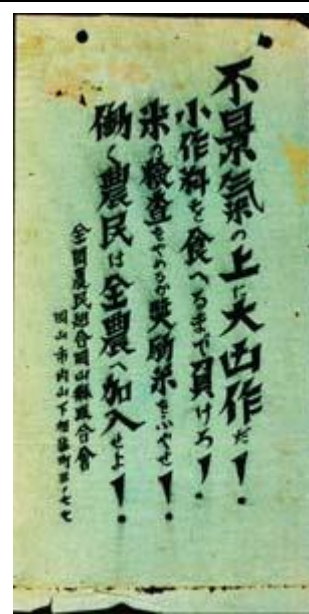 不景氣の上に大凶作だ！
小作料を食へるまで負けろ！
米の檢査をやめるか奬励米をふやせ！
働く農民は全農へ加入せよ！
全國農民組合岡山縣聯合會
岡山市内山下